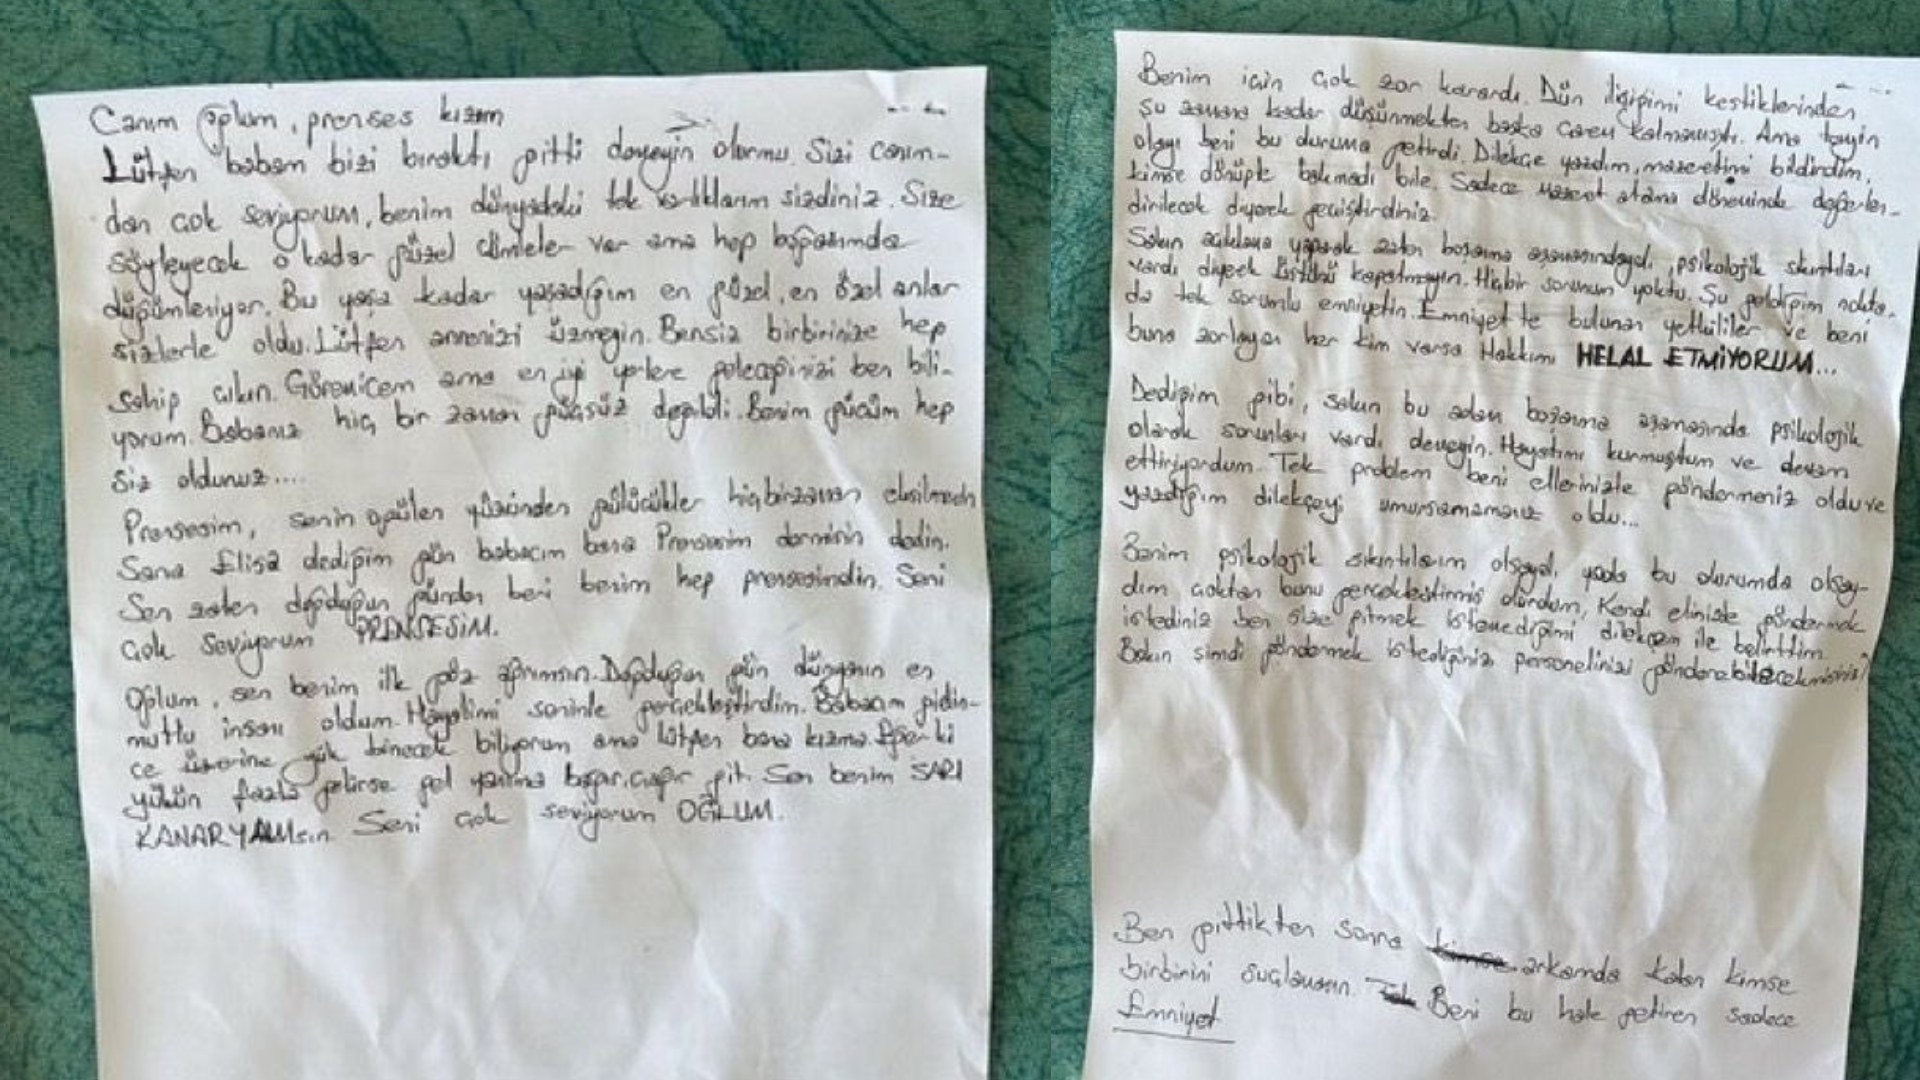 Canım oğlum, prenses kızım
Lütfen babam bizi bıraktı gitti demeyin olurmu. Sizi canım-
dan çok seviyorum, benim dünyadaki tek varlıklarım sizdiniz. Size
söyleyecek o kadar güzel cümleler var ama hep boğazımda
düğümleniyor. Bu yaşa kadar yaşadığım en güzel, en özel anlar
sizlerle oldu. Lütfen annenizi üzmeyin. Bensiz birbirinize hep
sahip çıkın. Göremicem ama en iyi yerlere geleceğinizi ben bili-
yorum. Babanız hiç bir zaman güçsüz değildi. Benim gücüm hep
siz oldunuz....
Prensesim, senin o gülen yüzünden gülücükler hiçbirzaman eksilmesin
Sana Elisa dediğim gün babacım bana Prensesim dermisin dedin.
Sen zaten doğduğun günden beri benim hep prensesimdin. Seni
çok seviyorum PRENSESİM.
Oğlum, sen benim ilk göz ağrımsın. Doğduğun gün dünyanın en
mutlu insanı oldum. Hayalimi seninle gerçekleştirdim. Babacım gidin-
ce üzerine yük binecek biliyorum ama lütfen bana kızma. Eğer ki
yükün fazla gelirse gel yanıma bağır, çağır git. Sen benim SARI
KANARYAMsın. Seni çok seviyorum OĞLUM.
Benim için çok zor karardı. Dün ilişiğimi kestiklerinden
şu zamana kadar düşünmekten başka çarem kalmamıştı. Ama tayin
olayı beni bu duruma getirdi. Dilekçe yazdım, mazeretimi bildirdim,
kimse dönüpte bakmadı bile. Sadece mazeret atama döneminde değerlen-
dirilecek diyerek geçiştirdiniz.
Sakın açıklama yaparak zaten boşanma aşamasındaydı, psikolojik sıkıntıları
vardı diyerek üstünü kapatmayın. Hiçbir sorunum yoktu. Şu geldiğim nokta-
da tek sorumlu emniyetin. Emniyette bulunan yetkililer ve beni
buna zorlayan her kim varsa Hakkımı HELAL ETMİYORUM...
Dediğim gibi, sakın bu adam boşanma aşamasında psikolojik
olarak sorunları vardı demeyin. Hayatımı kurmuştum ve devam
ettiriyordum. Tek problem beni ellerinizle göndermeniz oldu ve
yazdığım dilekçeyi umursamamanız oldu...
Benim psikolojik sıkıntılarım olsaydı yada bu durumda olsay-
dım çoktan bunu gerçekleştirmiş olurdum. Kendi elinizle göndermek
istediniz ben size gitmek istemediğimi dilekçem ile belirttim.
Bakın şimdi göndermek istediğiniz personelinizi gönderebilecekmisiniz?
Ben gittikten sonra kimse arkamda kalan kimse
birbirini suçlamasın. Tek Beni bu hale getiren sadece
Emniyet